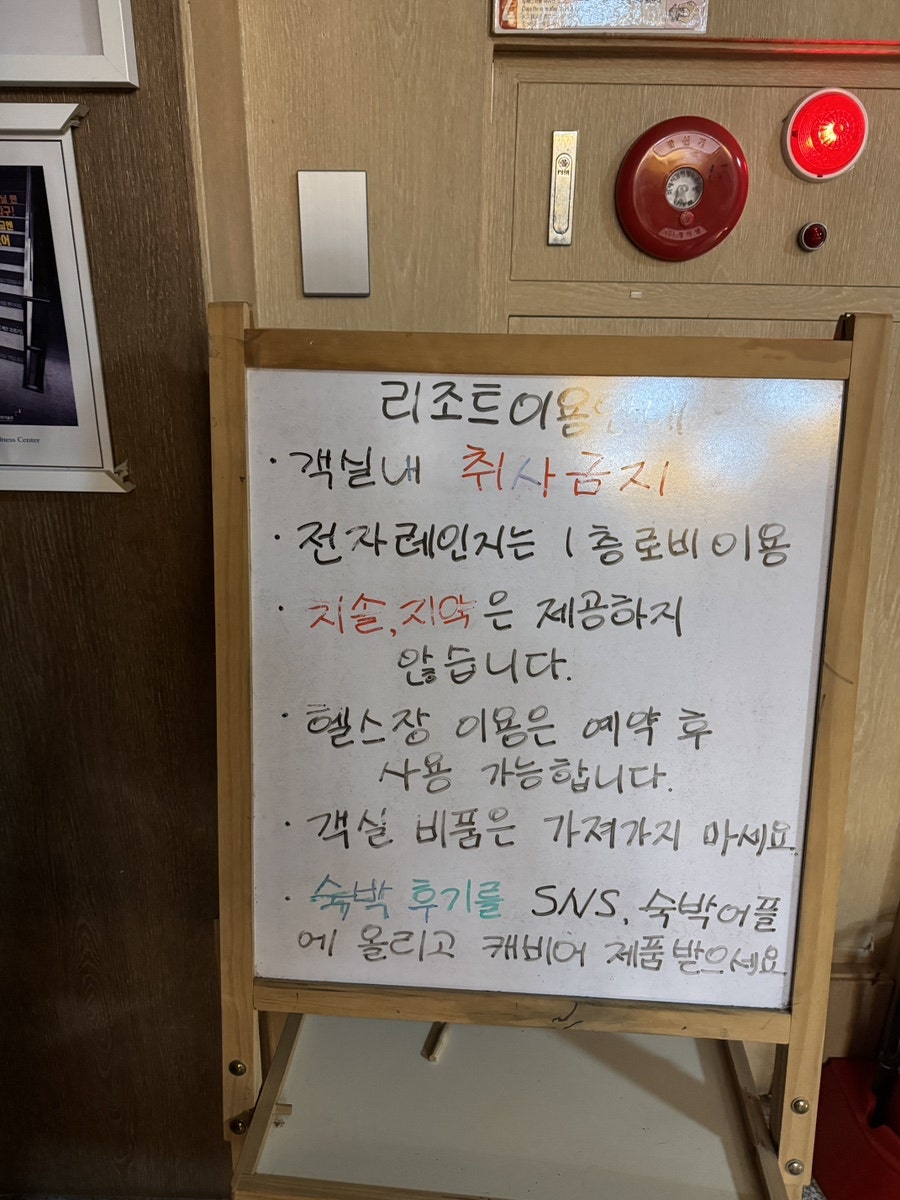 발신기
리조트 이용
· 객실내 취사금지
· 전자레인지는 1층 로비 이용
· 치솔, 치약은 제공하지
않습니다.
· 헬스장 이용은 예약 후
사용 가능합니다.
· 객실 비품은 가져가지 마세요.
· 숙박 후기를 SNS, 숙박어플
에 올리고 캐비어 제품받으세요